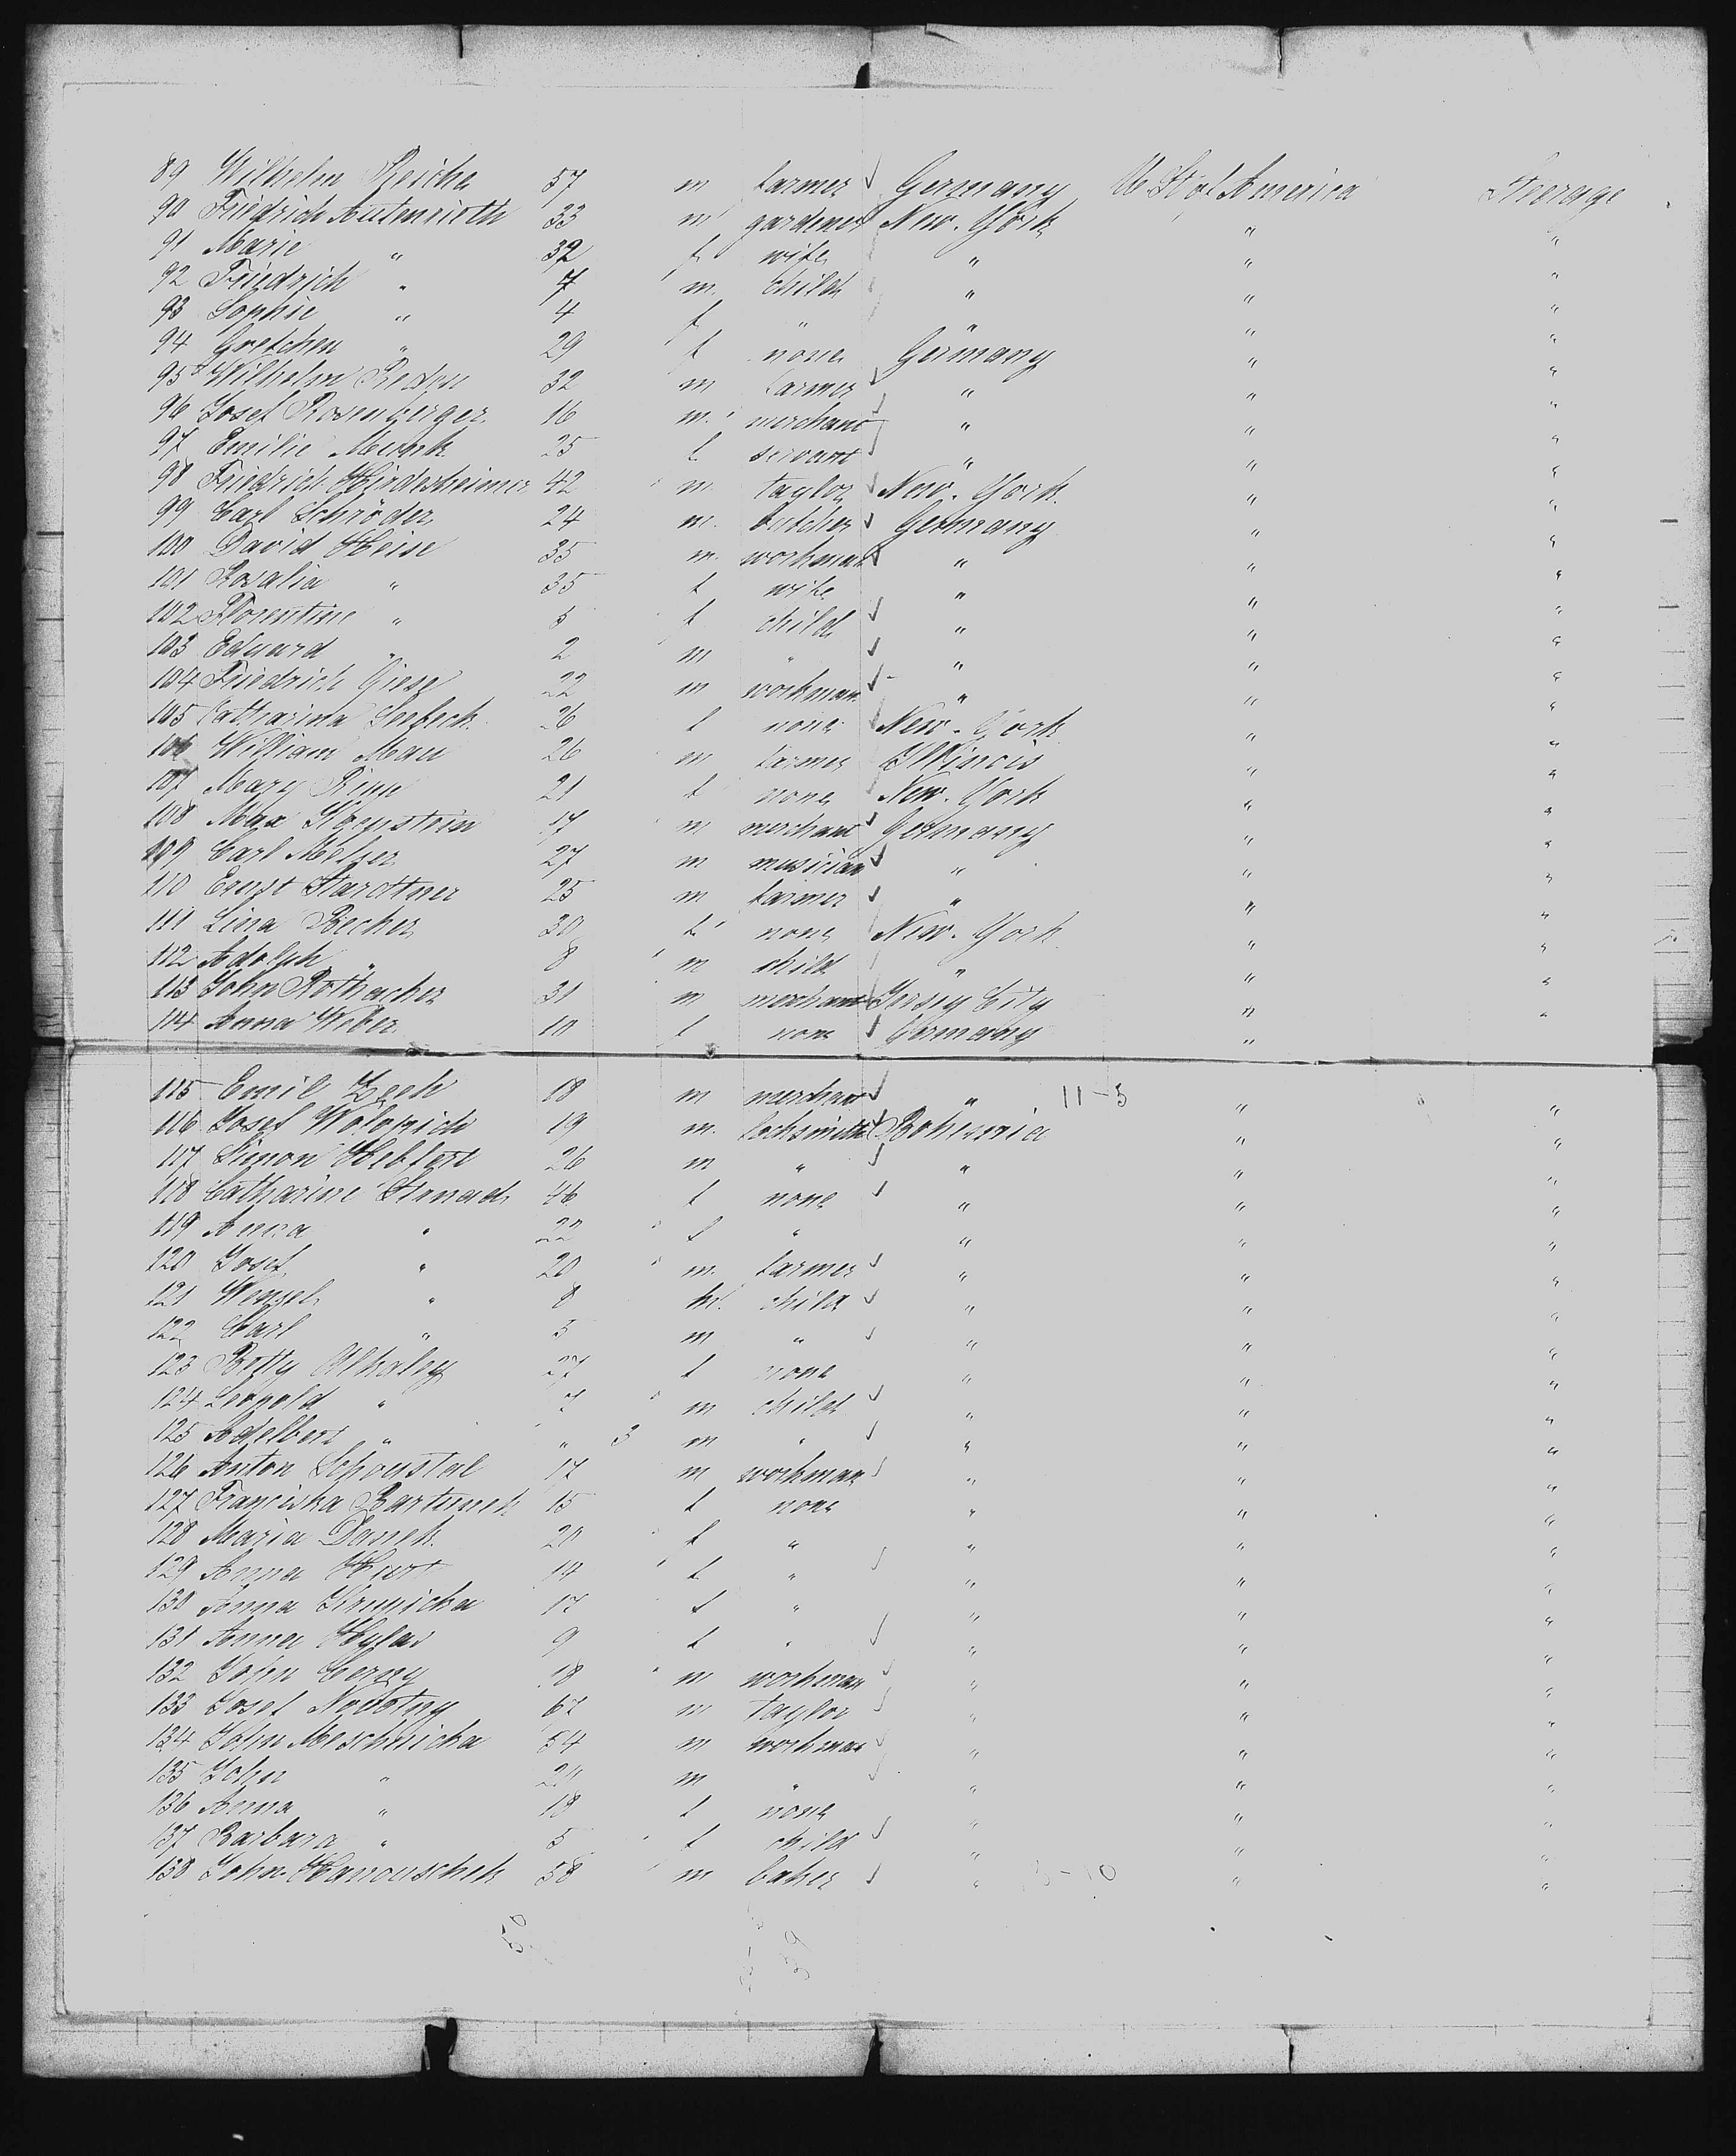 89 Wilhelm Reiche 57 m farmer Germany U. St. of America Steerage
90 Friedrich Autenrieth 33 m gardener New-York " "
91 Marie " 32 f wife " " "
92 Friedrich " 7 m child " " "
93 Sophie " 4 f " " " "
94 Gretchen " 29 f none Germany " "
95 Wilhelm 32 m farmer " " "
96 Josef Rosenberger 16 m merchant " " "
97 Emilie Munk 25 f servant " " "
98 Friedrich Hirdesheimer 42 m taylor New-York " "
99 Carl Schröder 24 m butcher Germany " "
100 David Heise 35 m workman " " "
101 Rosalia " 35 f wife " " "
102 Florentine " 5 f child " " "
103 Eduard " 2 m " " " "
104 Friedrich Giese 22 m workman " " "
105 Catharina Seebeck 26 f none New-York " "
106 William Mau 26 m farmer Illinois " "
107 Mary 21 f none New-York " "
108 Max 17 m merchant Germany " "
109 Carl Melzer 27 m musician " " "
110 Ernst 25 m farmer " " "
111 Lina Becker 30 f none New-York " "
112 Adolph " 8 m child " " "
113 John Rothacker 31 m merchant Jersey City " "
114 Anna Weber 10 f none Germany "
115 Emil Zech 18 m merchant " 11-5 " "
116 Josef 19 m. locksmith Bohemia " "
117 Simon 26 m " " " "
118 Catharine Strnad 46 f none " " "
119 Anna " 22 f " " " "
120 Josef " 20 m. farmer " " "
121 Wenzel " 8 m. child " " "
122 Carl " 5 m " " " "
123 Betty 27 f none " " "
124 Leopold " 7 m child " " "
125 Adelbert " " 3 m " " " "
126 Anton Schoustal 17 m workman " " "
127 Franciska Bartunek 15 f none " " "
128 Maria Danek 20 f " " " "
129 Anna 14 f " " " "
130 Anna 17 f " " " "
131 Anna 9 f " " " "
132 John Cerny 18 m workman " " "
133 Josef Novotny 67 m taylor " " "
134 John Meschnicka 54 m workman " " "
135 John " m " " " "
136 Anna " 18 f none " " "
137 Barbara " 5 f child " " "
138 John Hanouschek 58 m baker " 3-10 " "